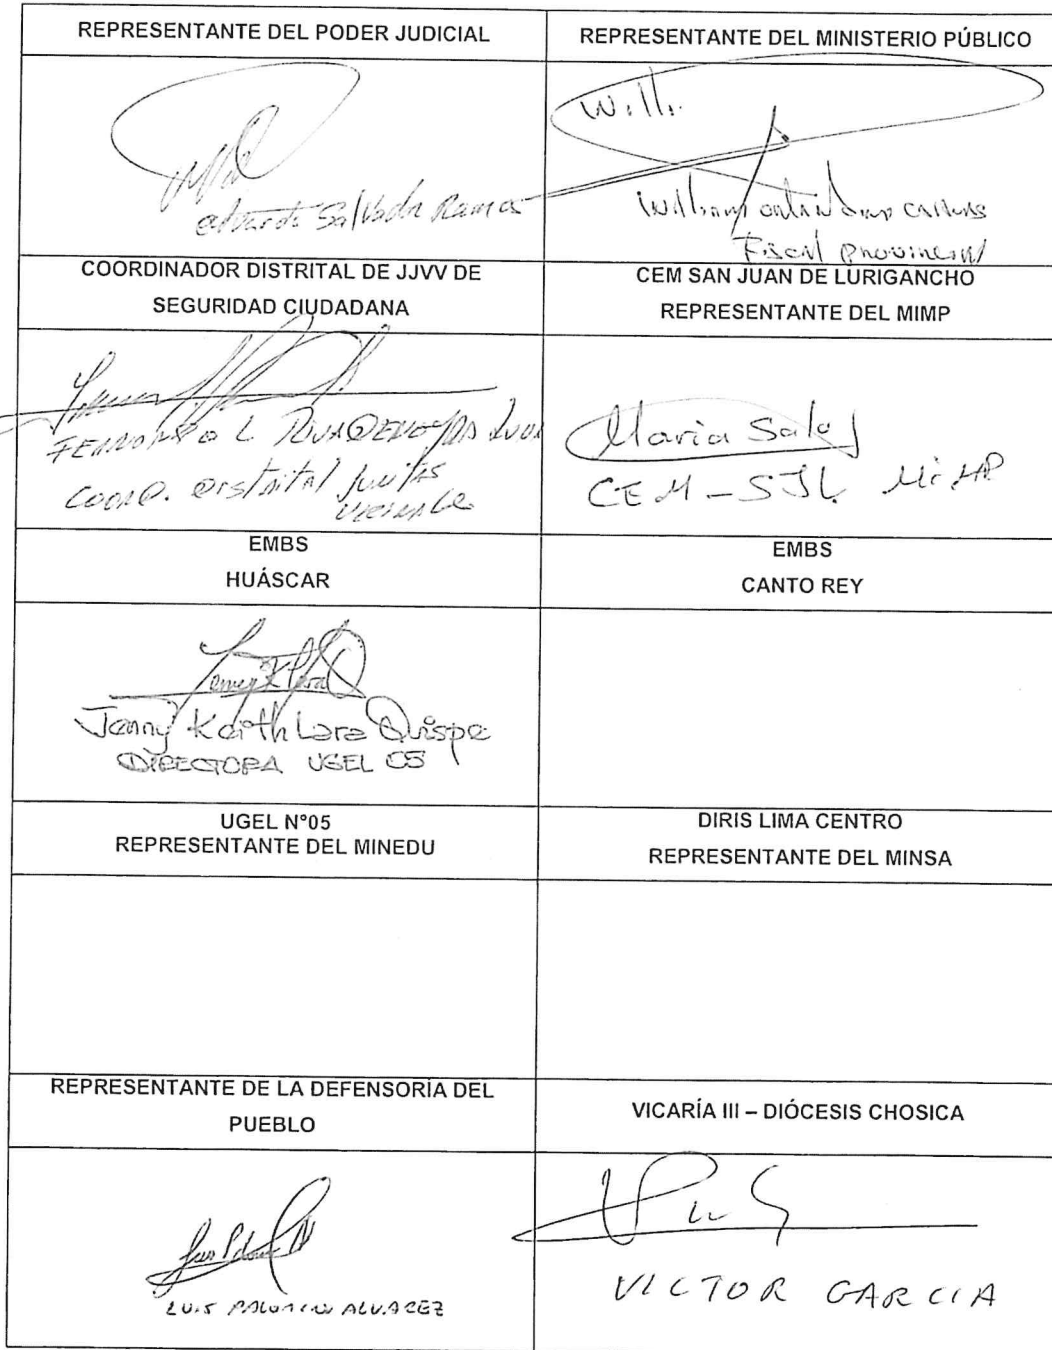 REPRESENTANTE DEL PODER JUDICIAL
REPRESENTANTE DEL MINISTERIO PÚBLICO
Will.
Salvador Ramos
William
Fiscal Provincial
COORDINADOR DISTRITAL DE JJVV DE
SEGURIDAD CIUDADANA
CEM SAN JUAN DE LURIGANCHO
REPRESENTANTE DEL MIMP
FERNANDO L
COORD. DISTRITAL JUNTAS
VECINALES
Maria Salo
CEM - SJL MIMP
EMBS
HUÁSCAR
EMBS
CANTO REY
Jenny Karith Lara Quispe
DIRECTORA UGEL 05
UGEL N°05
REPRESENTANTE DEL MINEDU
DIRIS LIMA CENTRO
REPRESENTANTE DEL MINSA
REPRESENTANTE DE LA DEFENSORÍA DEL
PUEBLO
VICARÍA III – DIÓCESIS CHOSICA
LUIS PALOMINO ALVAREZ
VICTOR GARCIA